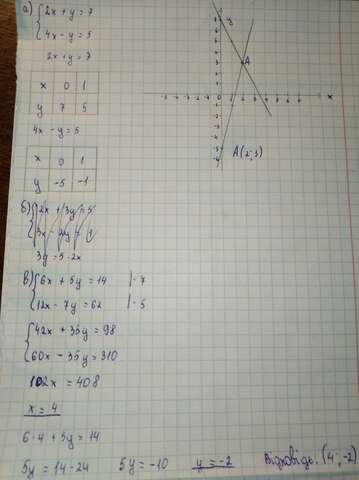 а) { 2x + y = 7
4x - y = 5
2x + y = 7
x 0 1
y 7 5
4x - y = 5
x 0 1
y -5 -1
y
x
A
A(2; 3)
б) { 2x + 3y = 5
3x - 2y = 1
3y = 5 - 2x
в) { 6x + 5y = 14 | · 7
12x - 7y = 62 | · 5
{ 42x + 35y = 98
60x - 35y = 310
102x = 408
x = 4
6 · 4 + 5y = 14
5y = 14 - 24 5y = -10 y = -2 Відповідь. (4; -2)